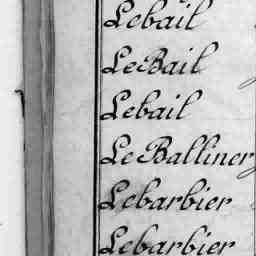 Lebail
LeBail
Lebail
Le Balliner
Lebarbier
Lebarbier